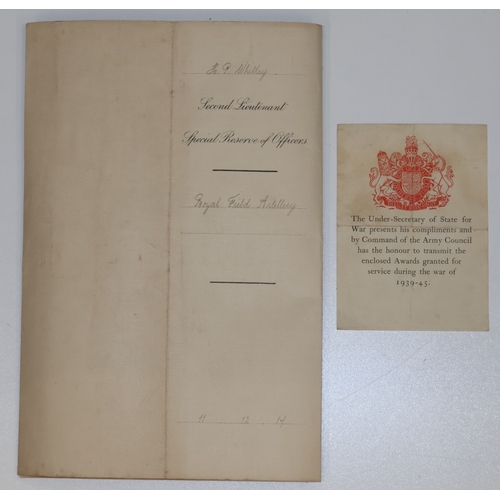 Whitley
Second Lieutenant
Special Reserve of Officers
Royal Field Artillery
11 12 14
The Under-Secretary of State for
War presents his compliments and
by Command of the Army Council
has the honour to transmit the
enclosed Awards granted for
service during the war of
1939-45.